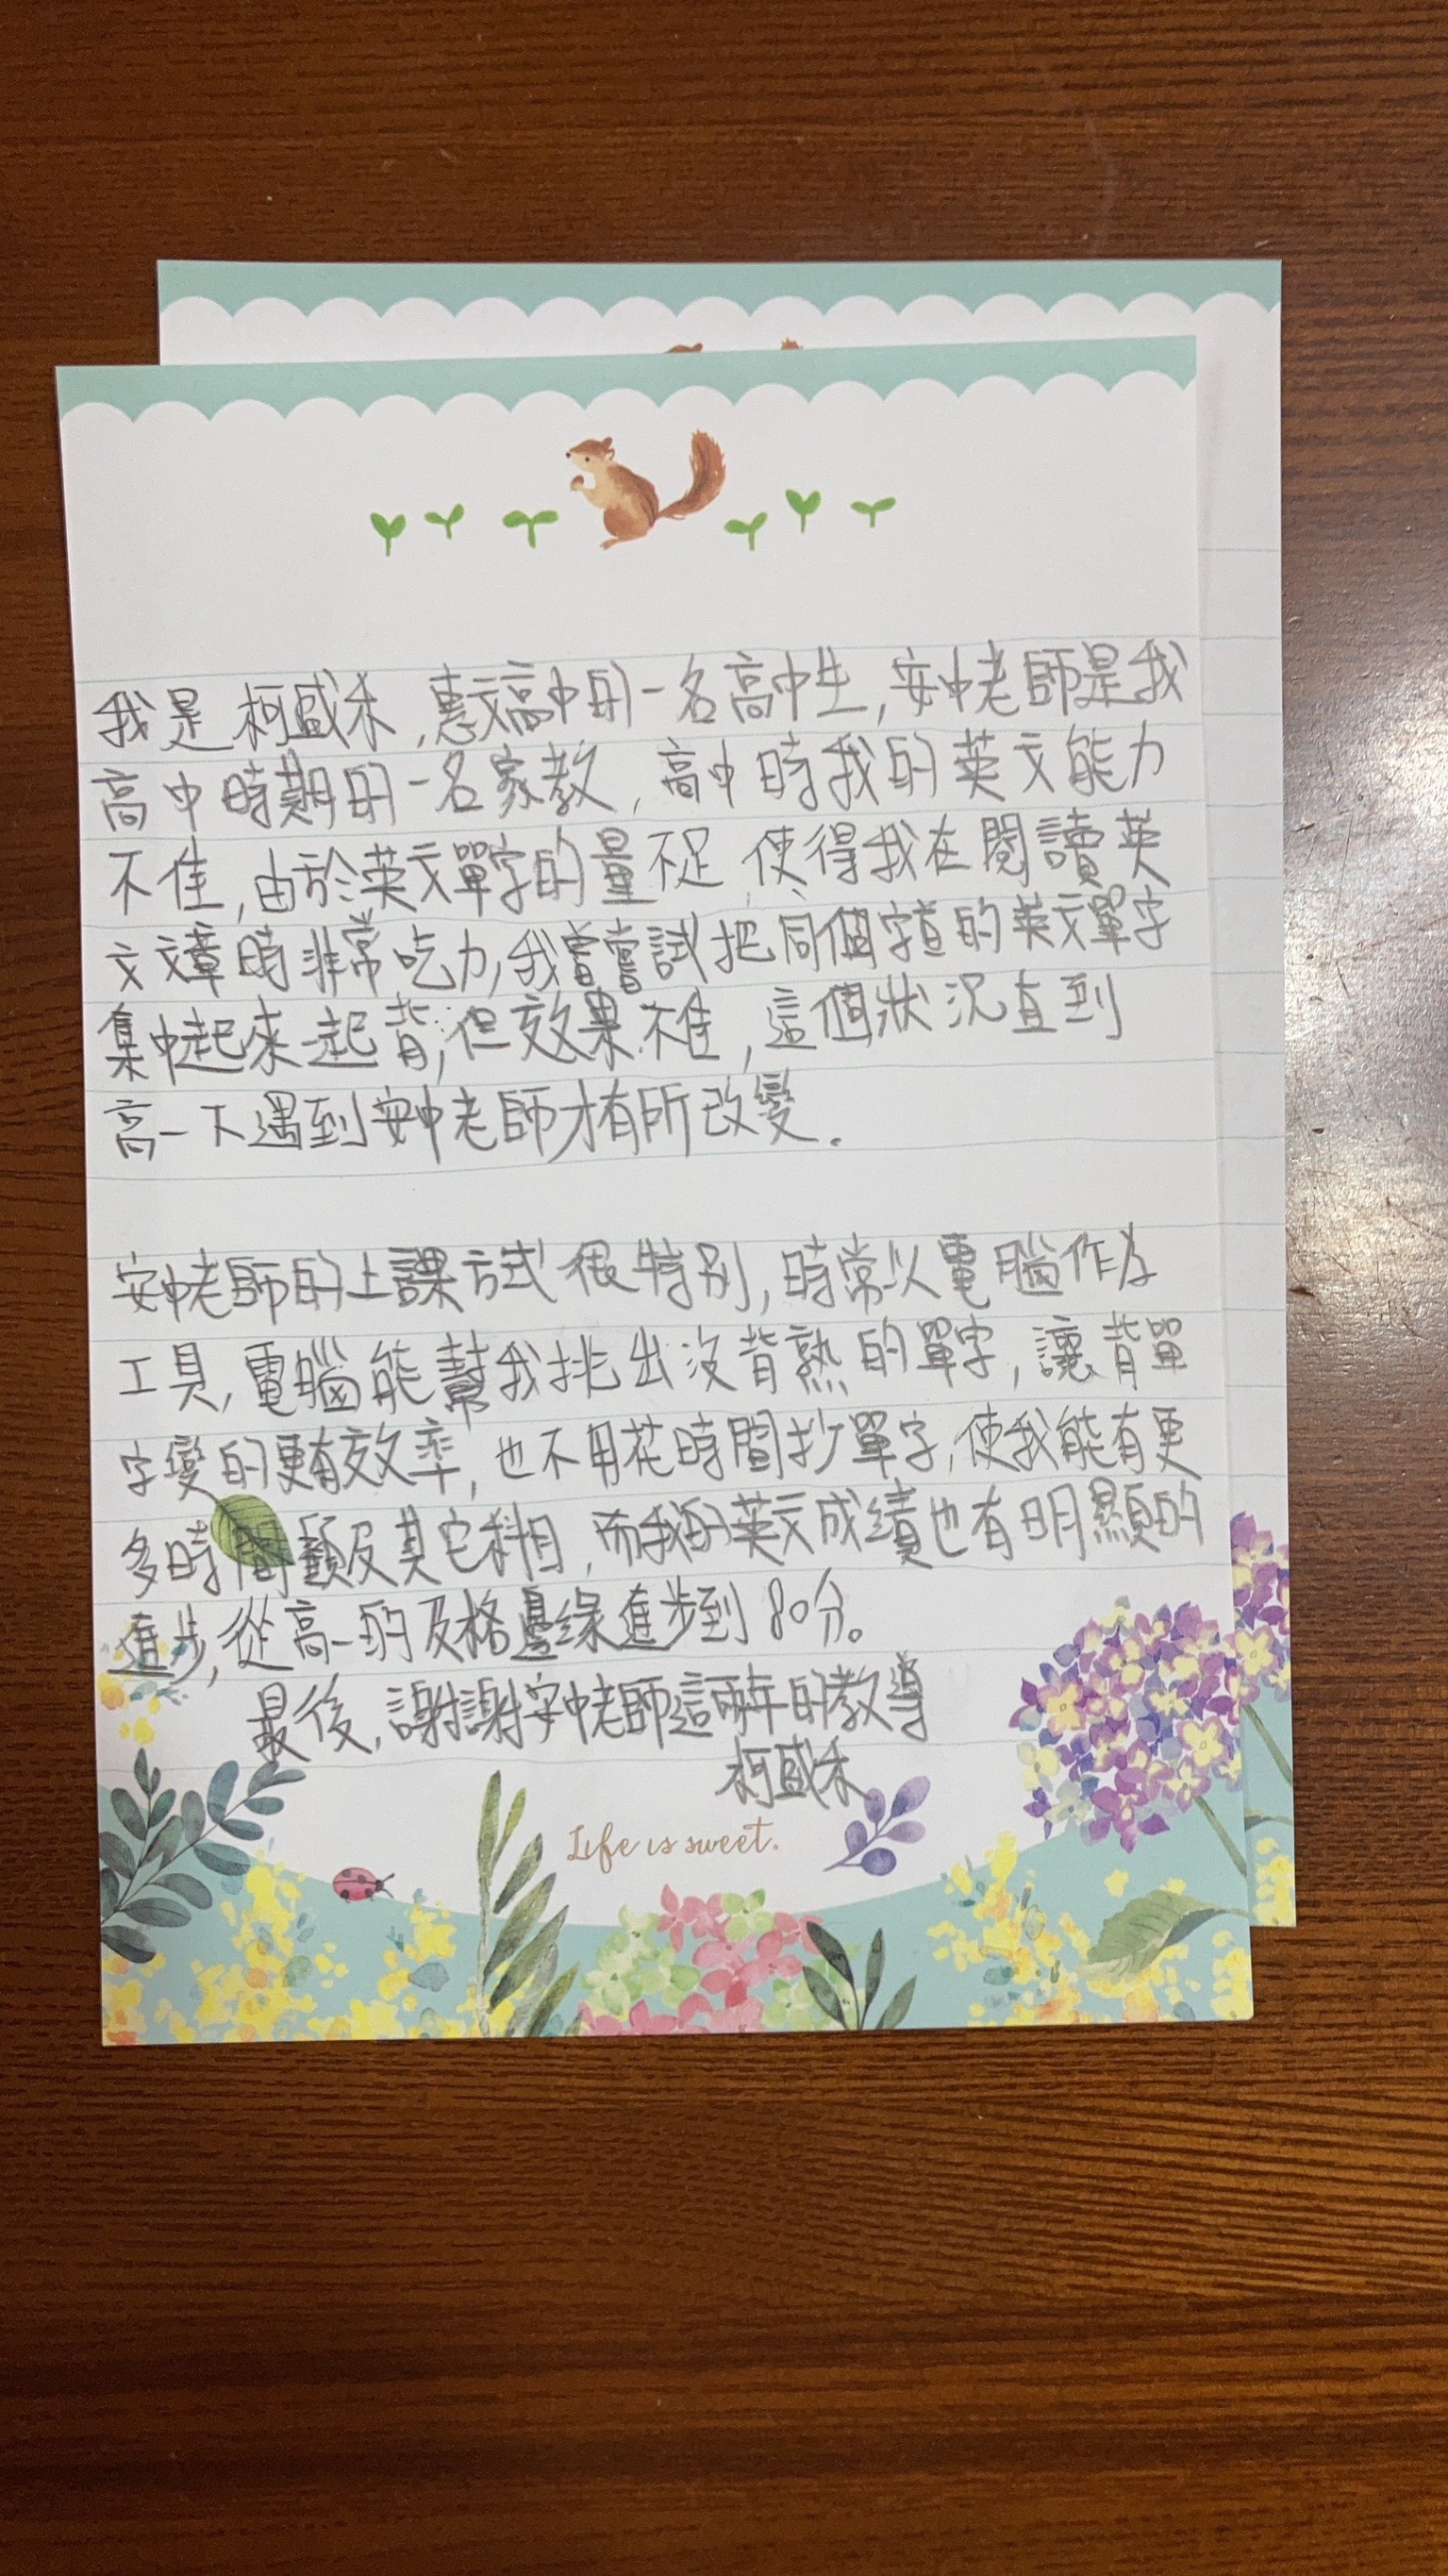 我是柯盛禾,惠文高中的一名高中生,安中老師是我
高中時期的一名家教,高中時我的英文能力
不佳,由於英文單字的量不足,使得我在閱讀英
文文章時非常吃力,我曾嘗試把同個字首的英文單字
集中起來一起背,但效果不佳,這個狀況直到
高一下遇到安中老師才有所改變.
安中老師的上課方式很特別,時常以電腦作為
工具,電腦能幫我挑出沒背熟的單字,讓背單
字變的更有效率,也不用花時間抄單字,使我能有更
多時間顧及其它科目,而我的英文成績也有明顯的
進步,從高一的及格邊緣進步到80分。
最後,謝謝安中老師這兩年的教導
柯盛禾
Life is sweet.